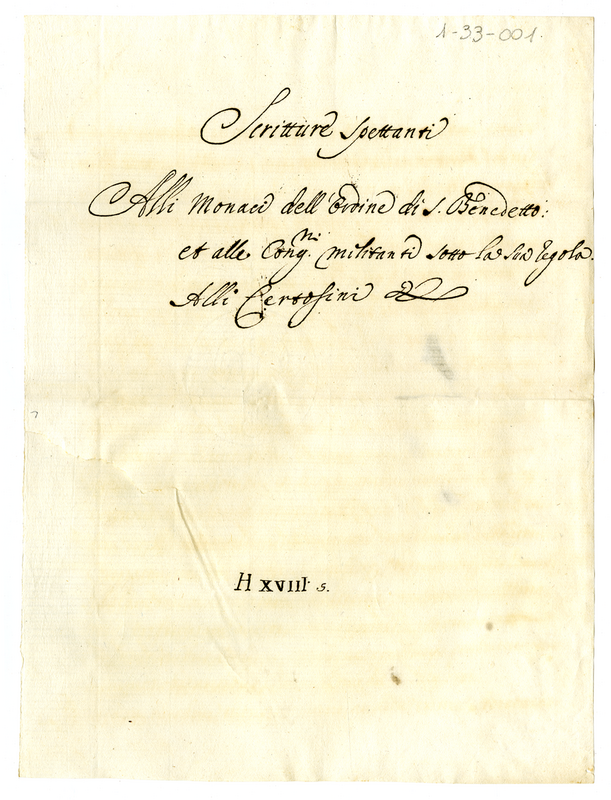 1-33-001.
Scritture spettanti
Alli Monaci dell'Ordine di S. Benedetto.
et alle Cong.ni militanti sotto la sua regola.
Alli Certosini
H XVIII. 5.